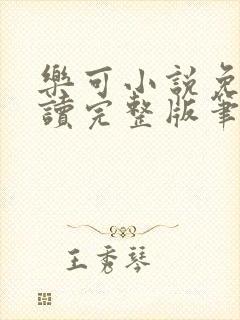 樂可小說免
讀完整版筆
王秀琴